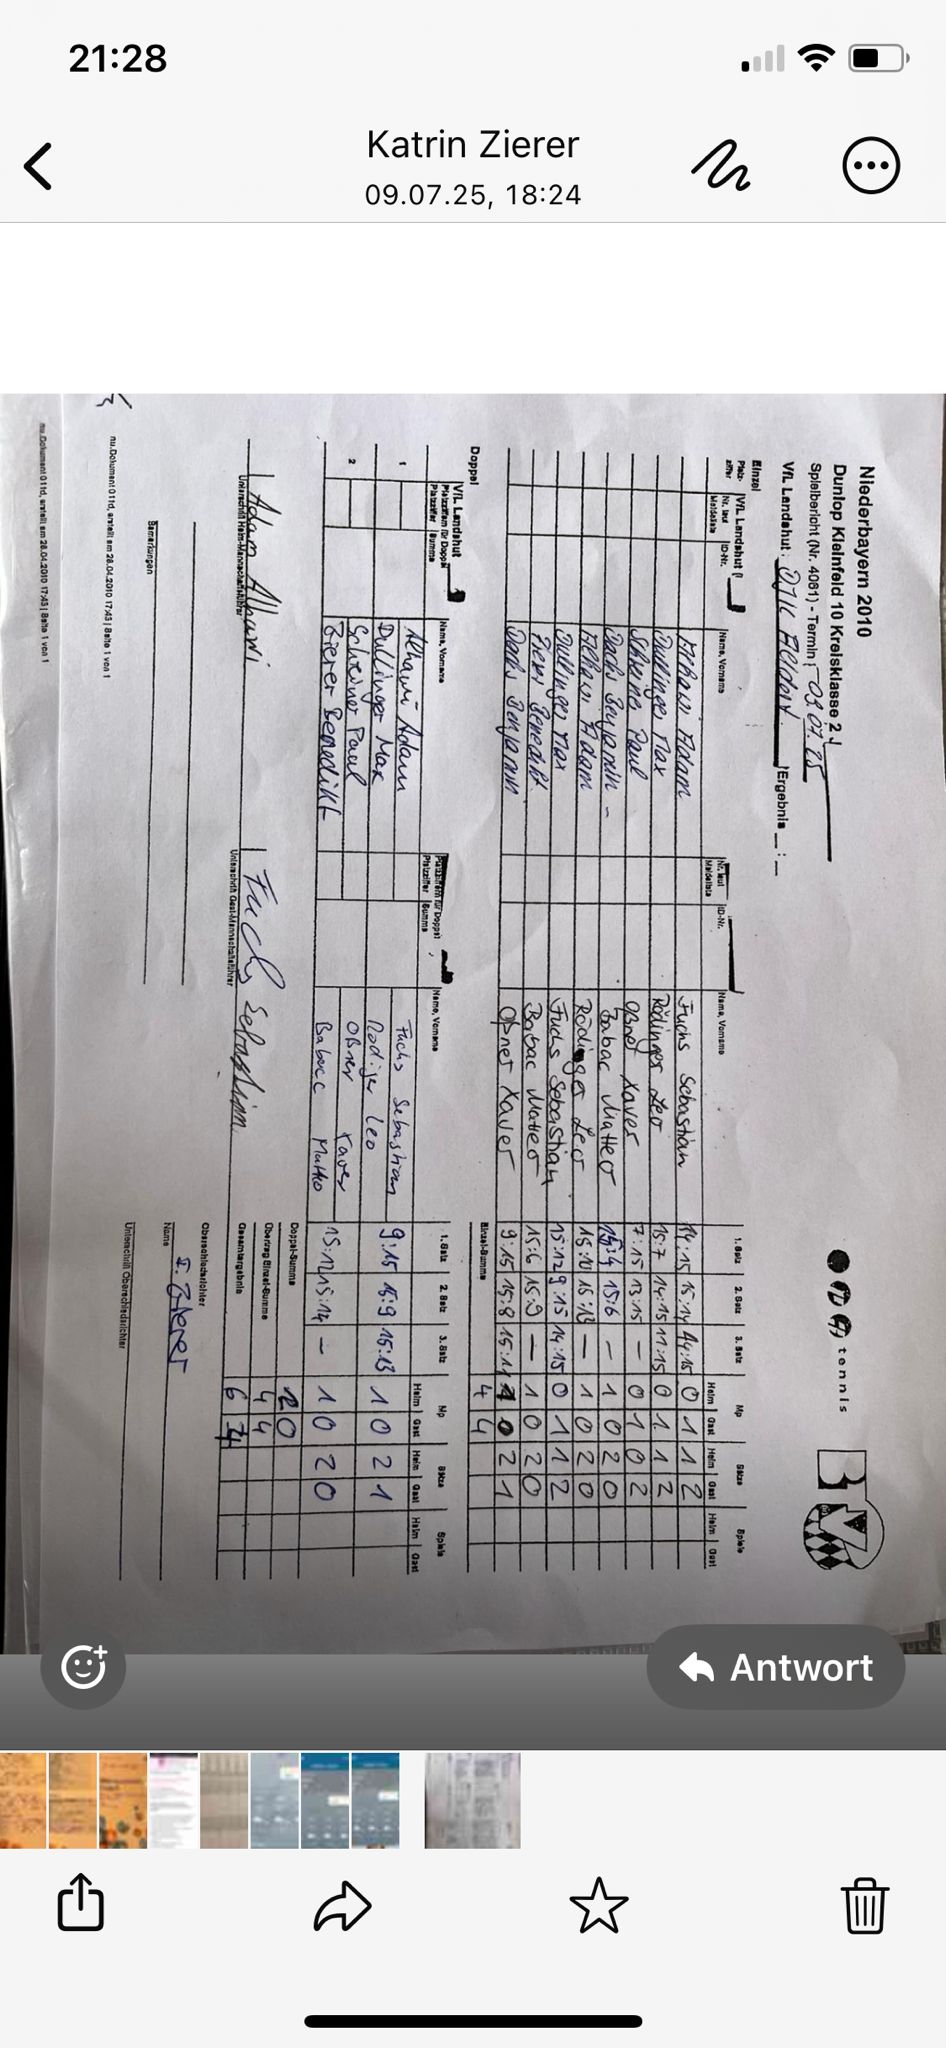 21:28
Katrin Zierer
09.07.25, 18:24
Niederbayern 2010
Dunlop Kleinfeld 10 Kreisklasse 2
Spielbericht (Nr. 4061) - Termin: 09.07.25
VfL Landshut : DJK Ergebnis _ : _
tennis
Einzel
Platz-ziffer VfL Landshut Nr. laut Meldeliste ID-Nr. Name, Vorname Nr. laut Meldeliste ID-Nr. Name, Vorname 1. Satz 2. Satz 3. Satz Mp Sätze Spiele
Heim Gast Heim Gast Heim Gast
Alhawi Adam Fuchs Sebastian 14:15 15:14 14:15 0 1 1 2
Dullinger Max Rödinger Leo 15:7 14:15 11:15 0 1 1 2
Scheiner Paul Oßner Xaver 7:15 13:15 – 0 1 0 2
Dachs Benjamin – Babac Matteo 15:6 – 1 0 2 0
Alhawi Adam Rödinger Leo 15:10 – 1 0 2 0
Dullinger Max Fuchs Sebastian 15:12 9:15 14:15 0 1 1 2
Zierer Benedikt Babac Matteo 15:6 15:9 – 1 0 2 0
Dachs Benjamin Oßner Xaver 9:15 15:8 1 0 2 1
Einzel-Summe 4 4
Doppel
VfL Landshut
Platzziffern für Doppel
Platzziffer Summe Name, Vorname Platzziffern für Doppel Platzziffer Summe Name, Vorname 1. Satz 2. Satz 3. Satz Mp Sätze Spiele
Heim Gast Heim Gast Heim Gast
1 Alhawi Adam Fuchs Sebastian 9:15 15:9 15:13 1 0 2 1
Dullinger Max Rödiger Leo
2 Scheiner Paul Oßner Xaver 15:12 15:14 – 1 0 2 0
Zierer Benedikt Babac Matteo
Doppel-Summe 2 0
Übertrag Einzel-Summe 4 4
Gesamtergebnis 6 4
Adam Alhawi Fuchs Sebastian
Unterschrift Heim-Mannschaftsführer Unterschrift Gast-Mannschaftsführer
Oberschiedsrichter
I. Zierer
Name
Bemerkungen
Unterschrift Oberschiedsrichter
nu.Dokument 011d, erstellt am 28.04.2010 17:43 | Seite 1 von 1
nu.Dokument 011d, erstellt am 28.04.2010 17:43 | Seite 1 von 1
Antwort